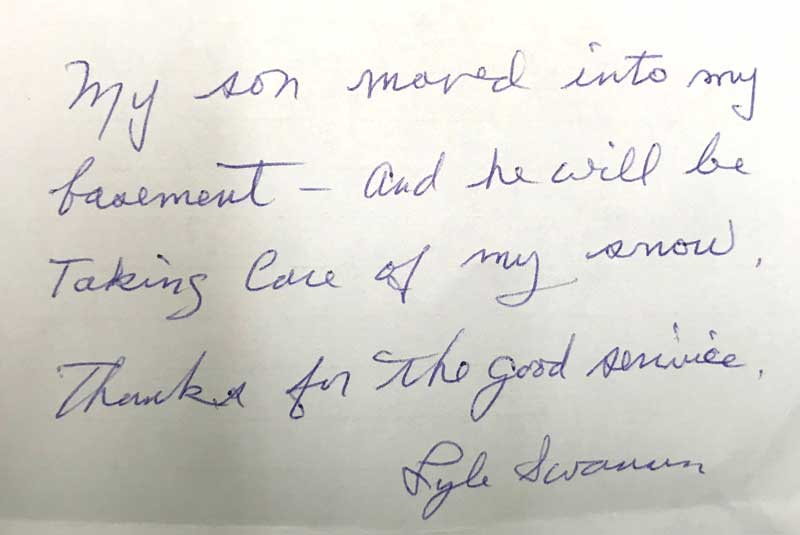 My son moved into my
basement – and he will be
Taking Care of my snow.
Thanks for the good service.
Lyle Swanson